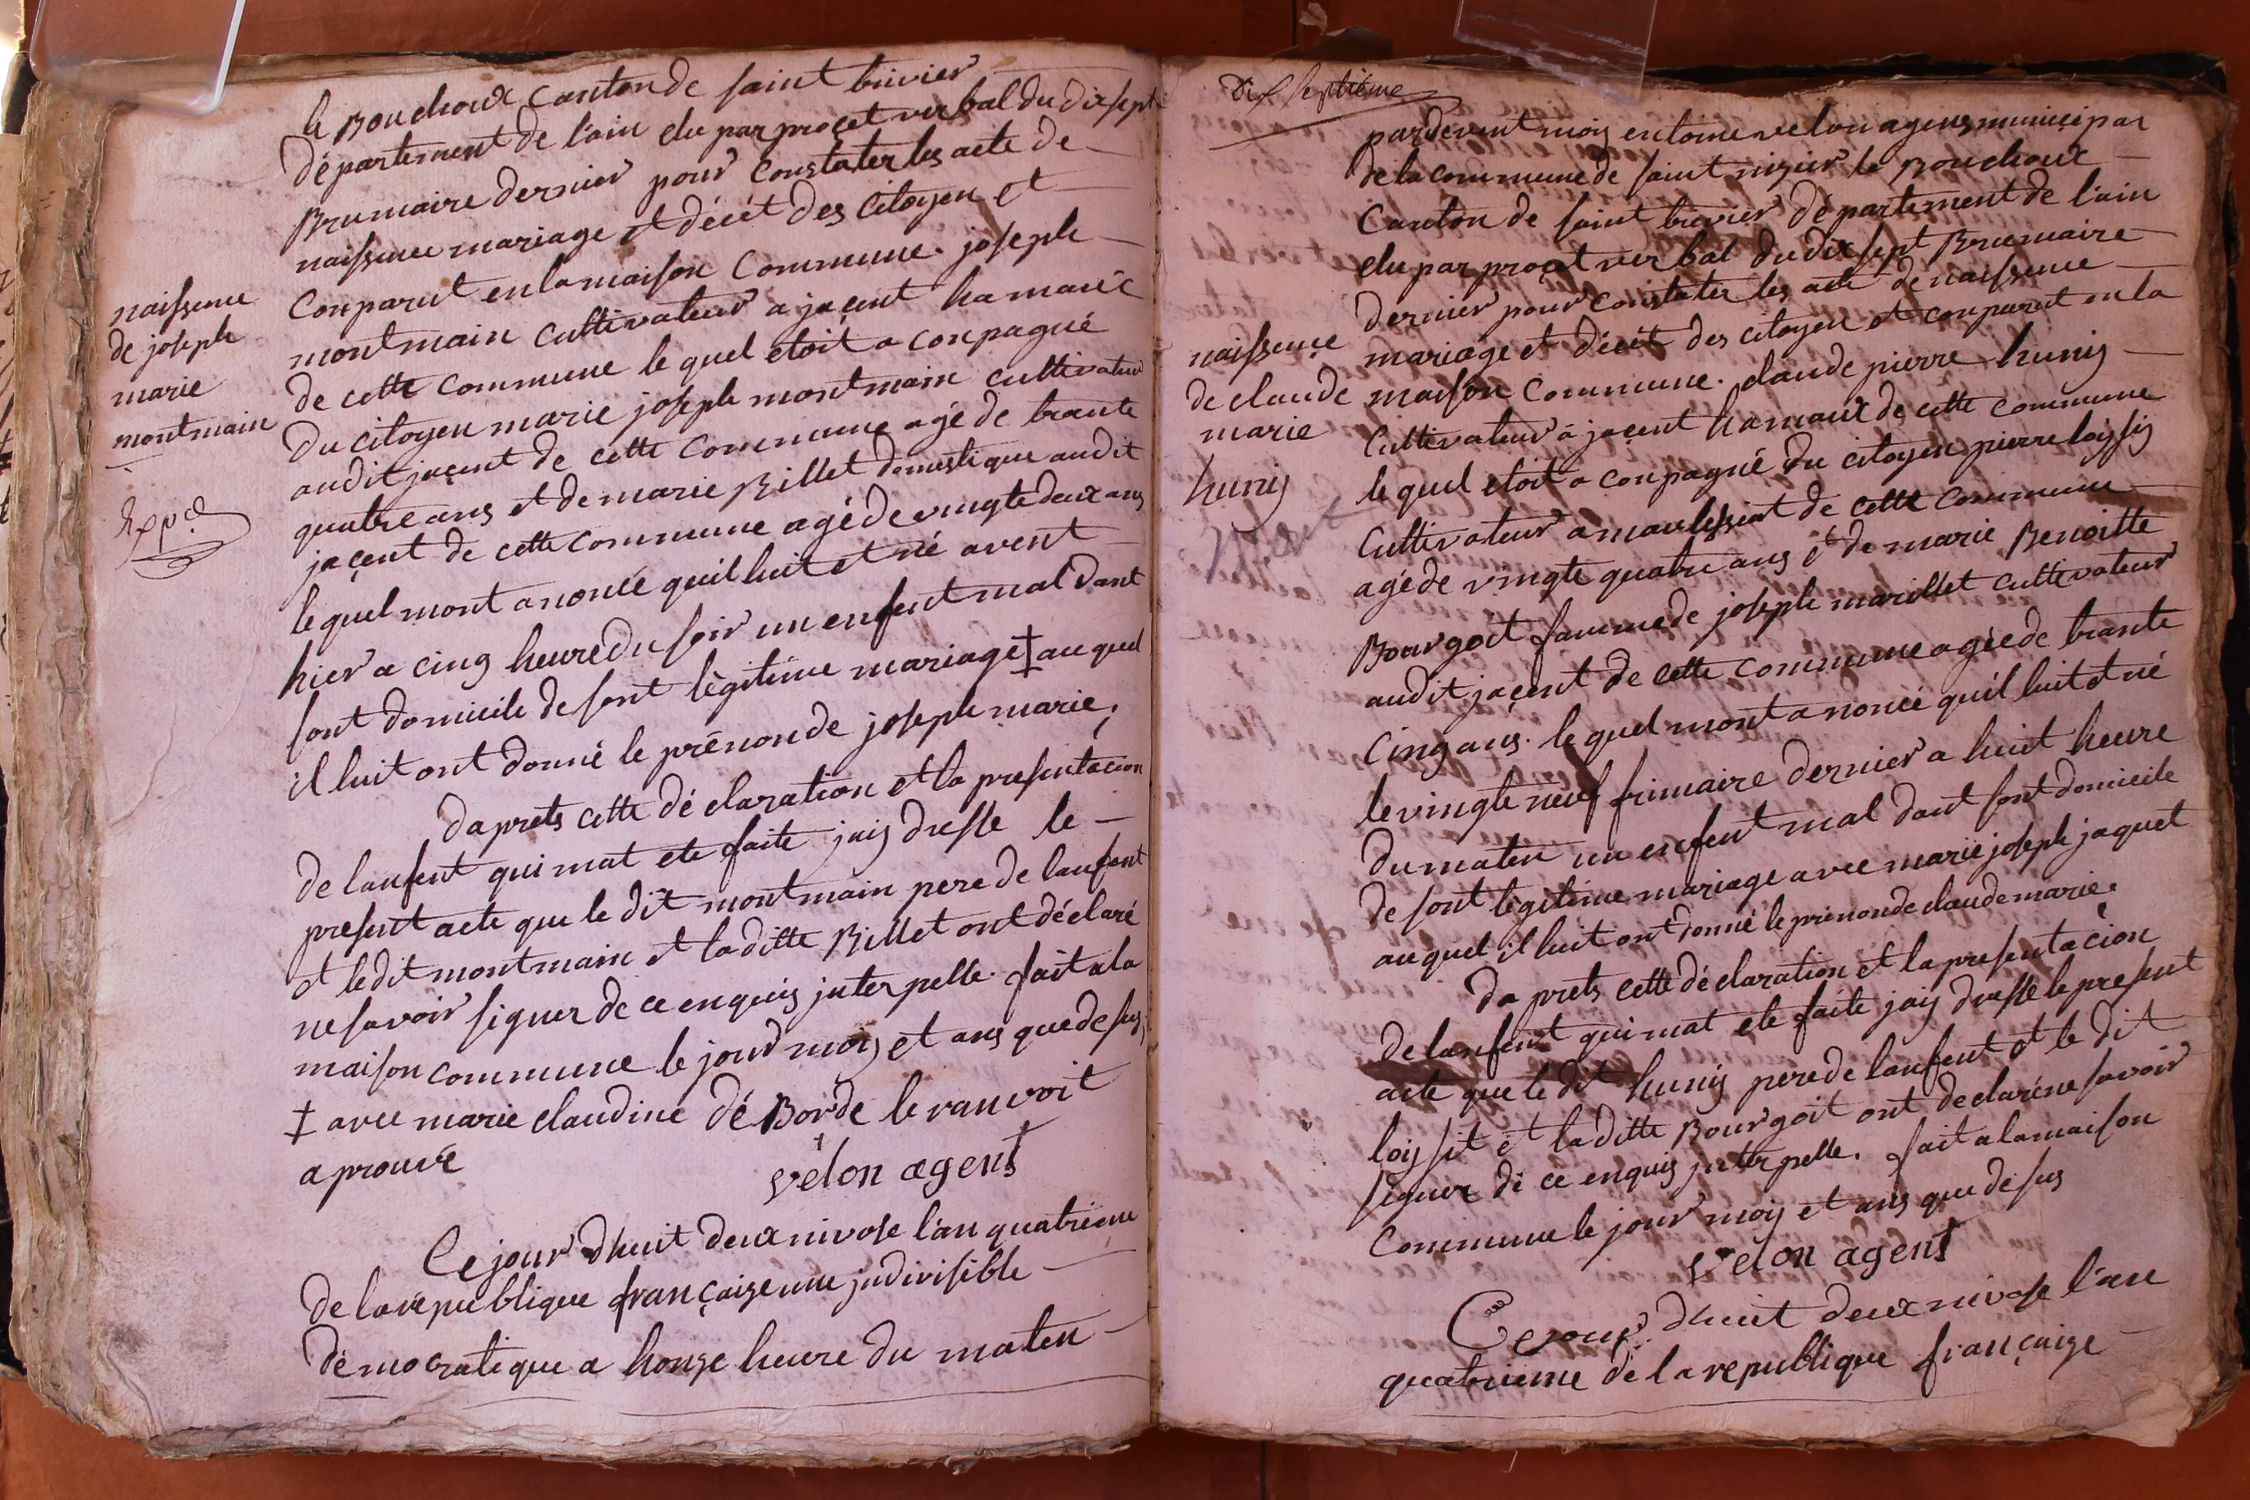 le Bouchoux canton de saint trivier
département de l'ain elu par proçet verbal du dix sept
Brumaire dernier pour constater les acte de
naissence mariage et décét des citoyen et
conparut en la maison commune. joseph
montmain cultivateur a jaçent hamaué
de cette commune le quel etoit a conpagné
du citoyen marie joseph montmain cultivateur
audit jaçent de cette commune agé de trante
quatre ans et de marie Billet domestique audit
jaçent de cette commune agé de vingte deux ans
le quel mont anoncé quil luit et né avent
hier a cinq heure du soir un enfent mal dant
sont domicile de sont légitime mariage ‡ au quel
il luit ont donné le prénon de joseph marie.
daprets cette déclaration et la presentacion
de lanfent qui mat ete faite jaiy dresse le
present acte que le dit montmain pere de lanfent
et le dit montmain et la ditte Billet ont déclaré
ne savoir signer de ce enquis jnterpelle. fait a la
maison commune le jour moy et ans que desus
‡ avec marie claudine dé Borde le ranvoit
aprouvé
vélon agent
Ce jour dhuit deux nivose l'an quatrieme
de la république françaize une jndivisible
démocratique a honze heure du maten
naissence
de joseph
marie
montmain
Dix septième
pardevent moy entoine velon agens municipar
de la commune de saint nizier le Bouchoux
Canton de saint trivier département de l'ain
elu par proçet verbal du dix sept Brumaire
dernier pour constater les acte de naissence
mariage et décét des citoyen et conparut en la
maison commune. claude pierre huniy
cultivateur a jaçent hamaux de cette commune
le quel etoit a conpagné du citoyen pierre loiysiy
cultivateur a de cette commune
agé de vingte quatre ans et de marie Benoitte
Bourgoit famme de joseph marillet cultivateur
audit jaçent de cette commune agée de trante
cinq ans. le quel mont anoncé quil luit et né
le vingte neuf frimaire dernier a huit heure
du maten un enfent mal dant sont domicile
de sont légitime mariage avec marie joseph jaquet
au quel il luit ont donné le prénon de claude marie.
da prets cette déclaration et la presentacion
de lanfent qui mat ete faite jaiy dresse le present
acte que le dit huniy pere de lanfent et le dit
loiysit et la ditte Bourgoit ont declaré ne savoir
signer de ce enquis jnterpelle. fait a la maison
commune le jour moy et ans que desus
velon agent
Ce jour dhuit deux nivose l'an
quatrieme de la republique françaize
naissençe
de claude
marie
huniy